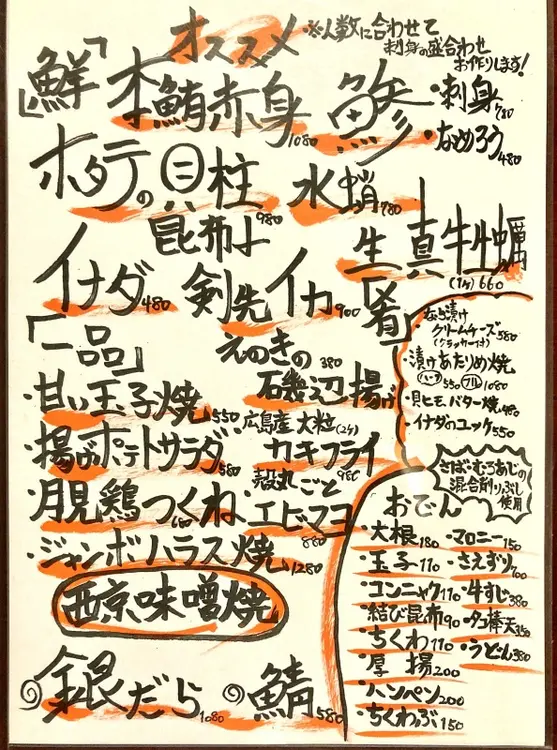 オススメ
※人数に合わせて
刺身の盛合わせ
お作りします!
「鮮」
本鮪赤身 1080
鯵
・刺身 780
・なめろう 480
ホタテの貝柱 980
昆布〆
水蛸 780
生真牡蠣
(1ヶ) 660
イナダ 480
剣先イカ 900
「肴」
・なら漬け
クリームチーズ 580
(クラッカー付)
・漬けあたりめ焼
ハーフ 550 フル 1080
・貝ヒモバター焼 480
・イナダのユッケ 550
「一品」
・甘い玉子焼 550
・揚げポテトサラダ 580
・月見鶏つくね 680
・ジャンボハラス焼 1280
えのきの 380
磯辺揚げ
広島産 大粒(2ケ)
カキフライ 980
・殻丸ごと
エビマヨ 880
西京味噌焼
銀だら 1080
鯖 580
さば・むろあじの
混合削りぶし
使用
おでん
・大根 180
・玉子 110
・コンニャク 110
・結び昆布 90
・ちくわ 110
・厚揚 200
・ハンペン 200
・ちくわぶ 150
・マロニー 150
・さえずり 700
・牛すじ 380
・タコ棒天 350
・うどん 380